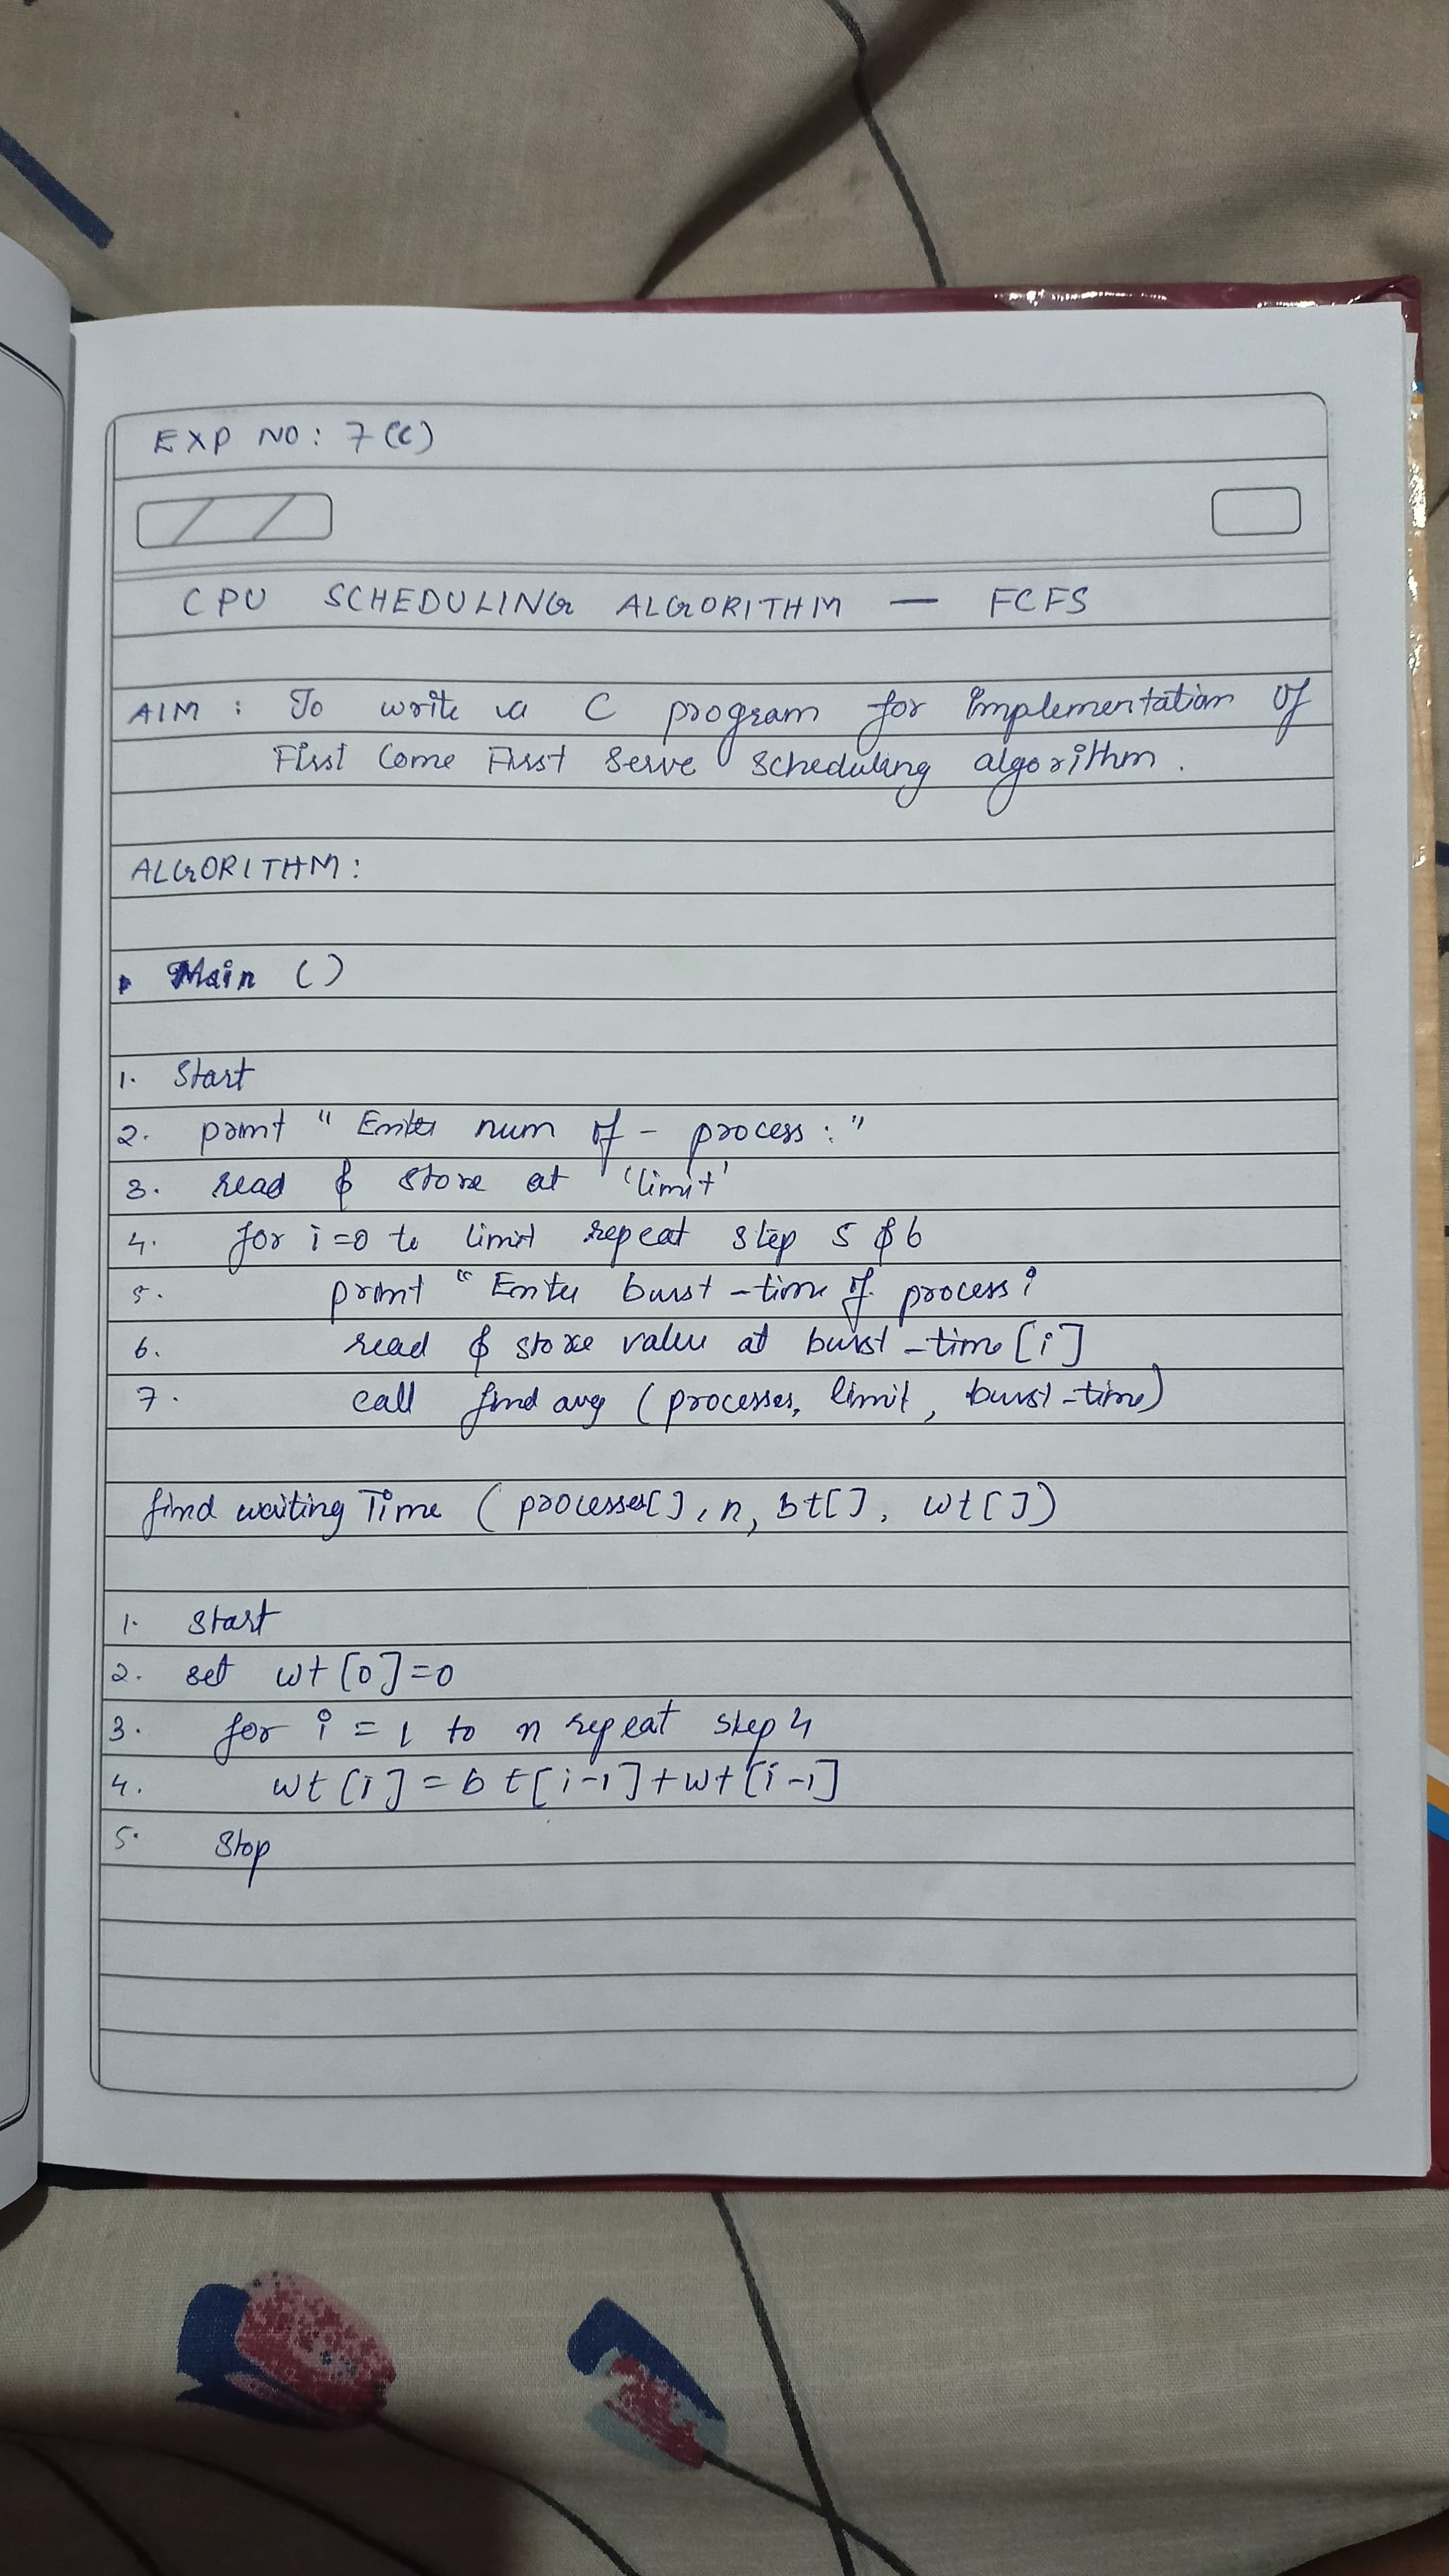 EXP NO: 7(c)
CPU SCHEDULING ALGORITHM — FCFS
AIM : To write a C program for implementation of
First Come First Serve Scheduling algorithm.
ALGORITHM:
Main ()
1. Start
2. print " Enter num of - process : "
3. read & store at 'limit'
4. for i=0 to limit repeat step 5 & 6
5. print " Enter burst-time of process i
6. read & store value at burst-time [i]
7. call find avg (processes, limit, burst-time)
find waiting Time (processes[], n, bt[], wt[])
1. Start
2. set wt[0]=0
3. for i = 1 to n repeat step 4
4. wt[i] = bt[i-1]+wt[i-1]
5. Stop